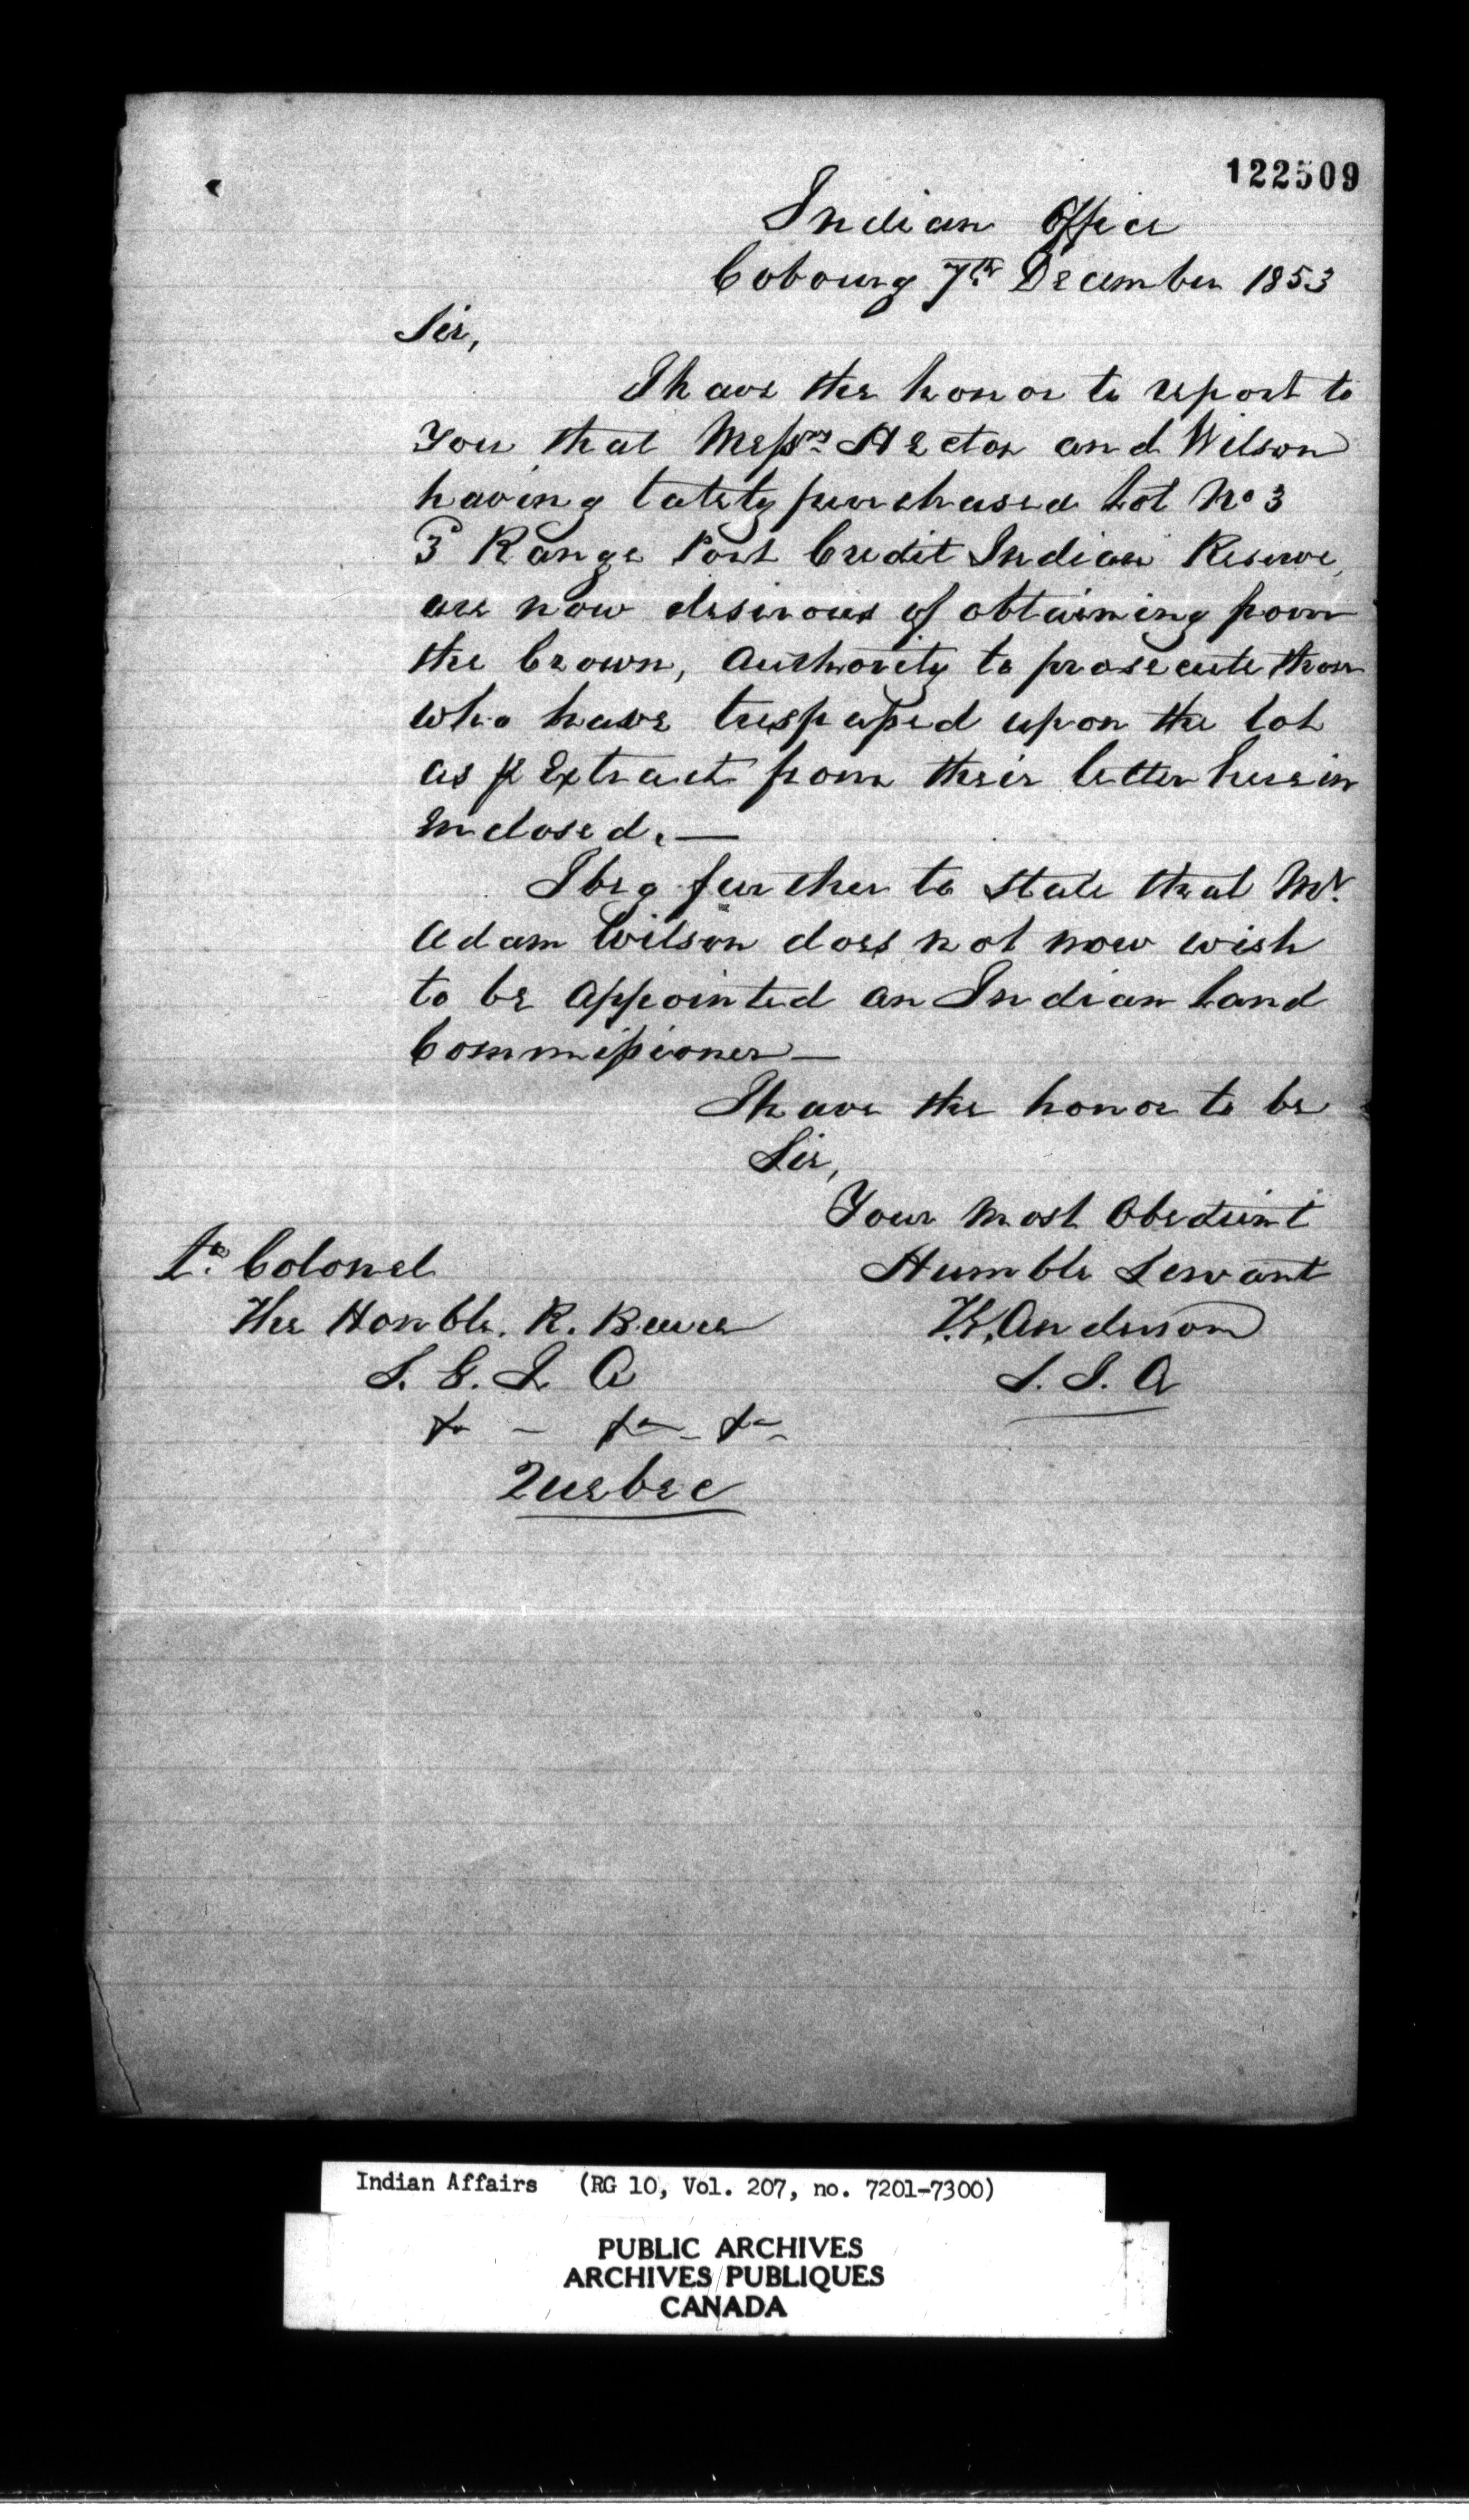 122509
Indian Office
Cobourg 7th December 1853
Sir,
I have the honor to report to
You that Messrs Hector and Wilson
having lately purchased Lot No 3
3d Range Port Credit Indian Reserve,
are now desirous of obtaining from
the Crown, Authority to prosecute those
who have trespassed upon the lot
as pr Extract from their letter herein
Enclosed.—
I beg further to state that Mr.
Adam Wilson does not now wish
to be Appointed an Indian Land
Commissioner—
I have the honor to be
Sir,
Your Most Obedient
Humble Servant
T.G. Anderson
S. I. A
Lt. Colonel
The Honble. R. Bruce
S. G. I. A
&c - &c - &c -
Quebec
Indian Affairs (RG 10, Vol. 207, no. 7201-7300)
PUBLIC ARCHIVES
ARCHIVES PUBLIQUES
CANADA